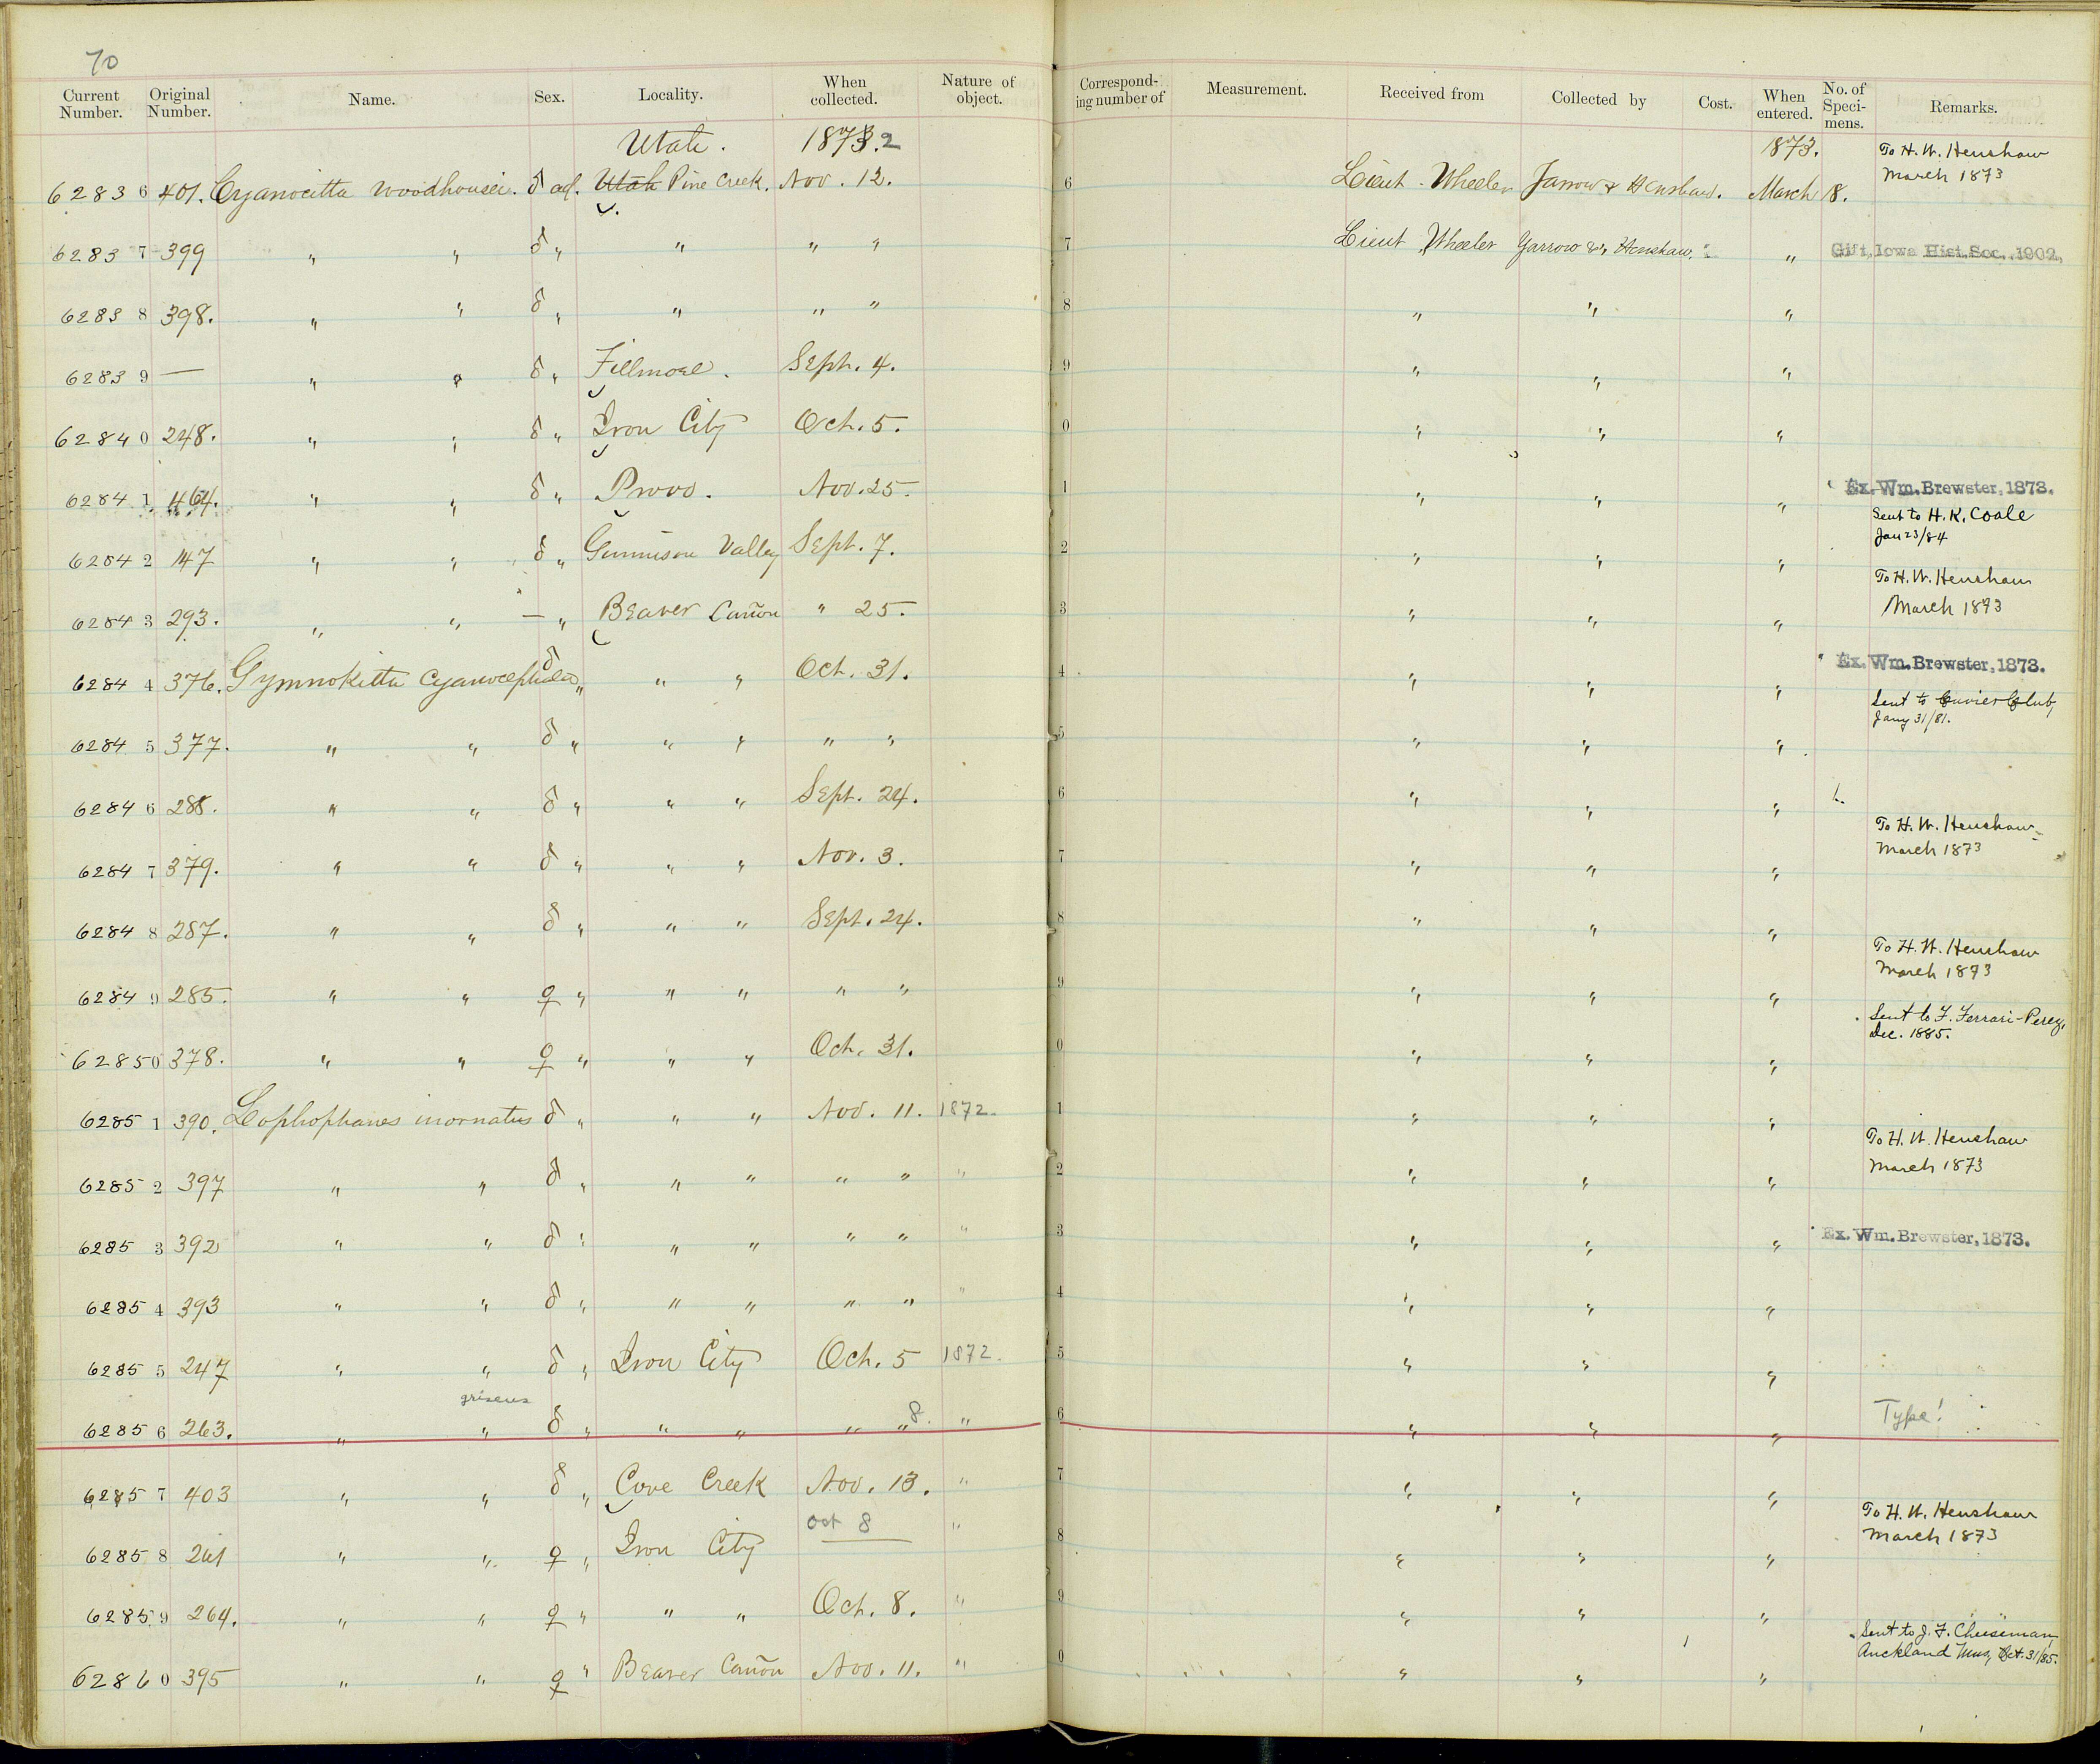 70
Current Number. Original Number. Name. Sex. Locality. When collected. Nature of object. Corresponding number of Measurement. Received from Collected by Cost. When entered. No. of Specimens. Remarks.
Utah. 1873.2 1873. To H. W. Henshaw
March 1873
6283 6 401. Cyanocitta woodhousei. ♂ ad. Utah Pine Creek. Nov. 12. 6 Lieut. Wheeler Yarrow & Henshaw. March 18.
6283 7 399 " " ♂ " " " " 7 Lieut Wheeler Yarrow & Henshaw. " Gift, Iowa Hist. Soc., 1902,
6283 8 398. " " ♂ " " " " 8 " " "
6283 9 — " " ♂ " Fillmore. Sept. 4. 9 " " "
6284 0 248. " " ♂ " Iron City Oct. 5. 0 " " "
6284 1 464. " " ♂ " Provo. Nov. 25. 1 " " " Ex. Wm. Brewster, 1873.
Sent to H. K. Coale
Jan 23/84
6284 2 147 " " ♂ " Gunnison Valley Sept. 7. 2 " " "
To H. W. Henshaw
March 1873
6284 3 293. " " — " Beaver Cañon " 25. 3 " " "
6284 4 376. Gymnokitta cyanocephala ♂ " " " Oct. 31. 4 " " " Ex. Wm. Brewster, 1873.
Sent to Cuvier Club,
Jany 31/81.
6284 5 377. " " ♂ " " " " " 5 " " "
6284 6 288. " " ♂ " " " Sept. 24. 6 " " "
To H. W. Henshaw
March 1873
6284 7 379. " " ♂ " " " Nov. 3. 7 " " "
6284 8 287. " " ♂ " " " Sept. 24. 8 " " "
To H. W. Henshaw
March 1873
6284 9 285. " " ♀ " " " " " 9 " " "
Sent to F. Ferrari-Perez,
Dec. 1885.
6285 0 378. " " ♀ " " " Oct. 31. 0 " " "
6285 1 390. Lophophanes inornatus ♂ " " " Nov. 11. 1872. 1 " " "
To H. W. Henshaw
March 1873
6285 2 397 " " ♂ " " " " " " 2 " " "
6285 3 392 " " ♂ " " " " " " 3 " " " Ex. Wm. Brewster, 1873.
6285 4 393 " " ♂ " " " " " " 4 " " "
6285 5 247 " " ♂ " Iron City Oct. 5 1872. 5 " " "
griseus
6285 6 263. " " ♂ " " " " " 8. " 6 " " " Type!
6285 7 403 " " ♂ " Cove Creek Nov. 13. " 7 " " "
To H. W. Henshaw
March 1873
6285 8 261 " " ♀ " Iron City Oct 8 " 8 " " "
6285 9 264. " " ♀ " " " Oct. 8. " 9 " " "
Sent to J. F. Cheeseman,
Auckland Mus, Oct. 31/85.
6286 0 395 " " ♀ " Beaver Cañon Nov. 11. " 0 " " "